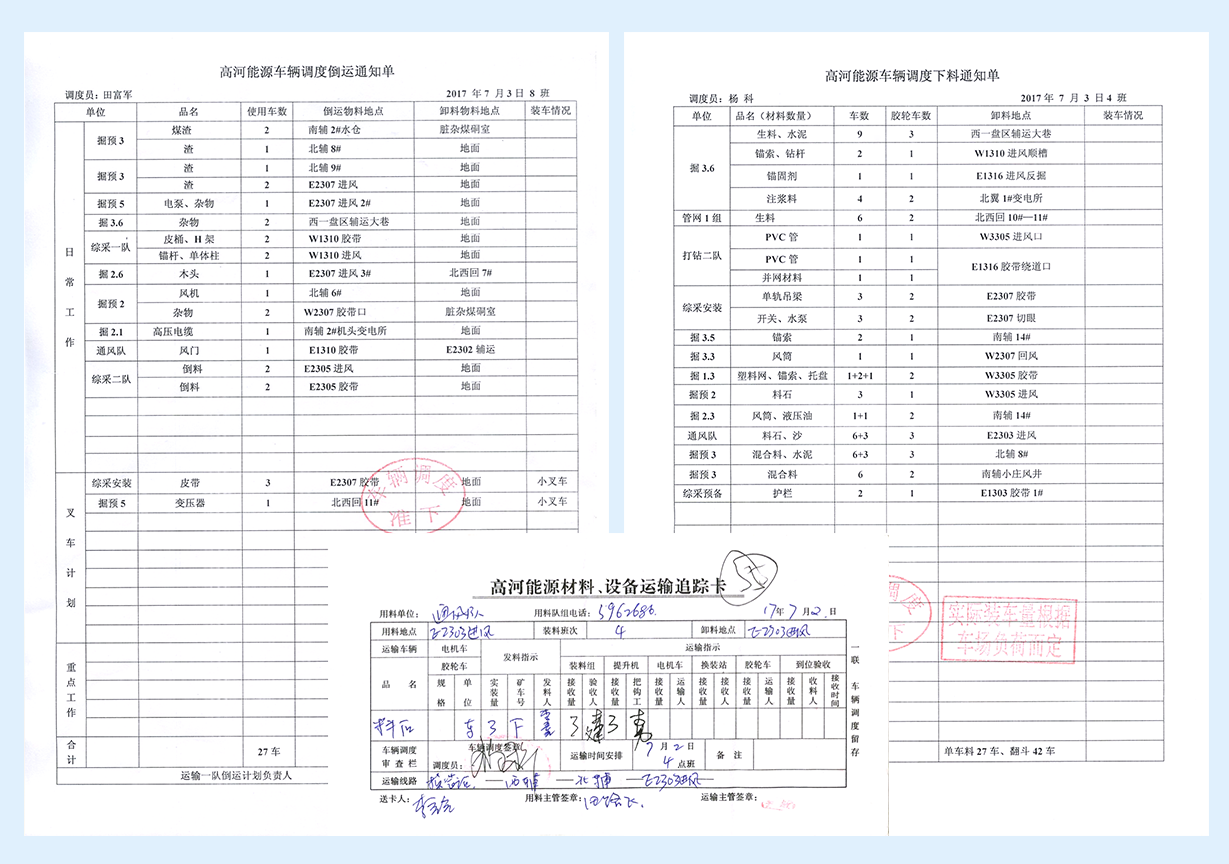 高河能源车辆调度倒运通知单
调度员：田富军 2017 年 7 月 3 日 8 班
单位 品名 使用车数 倒运物料地点 卸料物料地点 装车情况
日常工作
掘预 3 煤渣 2 南辅 2#水仓 脏杂煤硐室
渣 1 北辅 8# 地面
掘预 3 渣 1 北辅 9# 地面
渣 2 E2307 进风 地面
掘预 5 电泵、杂物 1 E2307 进风 2# 地面
掘 3.6 杂物 2 西一盘区辅运大巷 地面
综采一队 皮桶、H 架 2 W1310 胶带 地面
锚杆、单体柱 2 W1310 进风 地面
掘 2.6 木头 1 E2307 进风 3# 北西回 7#
掘预 2 风机 1 北辅 6# 地面
杂物 2 W2307 胶带口 脏杂煤硐室
掘 2.1 高压电缆 1 南辅 2#机头变电所 地面
通风队 风门 1 E1310 胶带 E2302 辅运
综采二队 倒料 2 E2305 进风 地面
倒料 2 E2305 胶带 地面
叉车计划
综采安装 皮带 3 E2307 胶带 地面 小叉车
掘预 5 变压器 1 北西回 11# 地面 小叉车
车辆调度
准下
重点工作
合计 27 车
运输一队倒运计划负责人
高河能源车辆调度下料通知单
调度员：杨 科 2017 年 7 月 3 日 4 班
单位 品名（材料数量） 车数 胶轮车数 卸料地点 装车情况
掘 3.6 生料、水泥 9 3 西一盘区辅运大巷
锚索、钻杆 2 1 W1310 进风顺槽
锚固剂 1 1 E1316 进风反掘
注浆料 4 2 北翼 1#变电所
管网 1 组 生料 6 2 北西回 10#—11#
打钻二队 PVC 管 1 1 W3305 进风口
PVC 管 1 1 E1316 胶带绕道口
并网材料 1 1
综采安装 单轨吊梁 3 2 E2307 胶带
开关、水泵 3 2 E2307 切眼
掘 3.5 锚索 2 1 南辅 14#
掘 3.3 风筒 1 1 W2307 回风
掘 1.3 塑料网、锚索、托盘 1+2+1 2 W3305 胶带
掘预 2 料石 3 1 W3305 进风
掘 2.3 风筒、液压油 1+1 2 南辅 14#
通风队 料石、沙 6+3 3 E2303 进风
掘预 3 混合料、水泥 6+3 3 北辅 8#
掘预 3 混合料 6 2 南辅小庄风井
综采预备 护栏 2 1 E1303 胶带 1#
调度
下
实际装车量根据
车场负荷而定
单车料 27 车、翻斗 42 车
高河能源材料、设备运输追踪卡
用料单位：通风队 用料队组电话：5962686 17年 7 月 2 日
用料地点 E2303进风 装料班次 4 卸料地点 E2303进风
运输车辆 电机车 胶轮车 发料指示 运输指示
装料组 提升机 电机车 换装站 胶轮车 到位验收
品名 规格 单位 实装量 矿车号 发料人 接收量 验收人 接收量 把钩工 接收量 运输人 接收量 接收人 接收量 运输人 接收量 收料人 接收时间
料石 车 3 下 3 3
车辆调度审查栏 车辆调度签章 调度员： 运输时间安排 7 月 2 日 4 点班 备注
运输线路 西辅 — 北辅 — E2303进风
送卡人： 用料主管签章： 运输主管签章：
一联 车辆调度留存